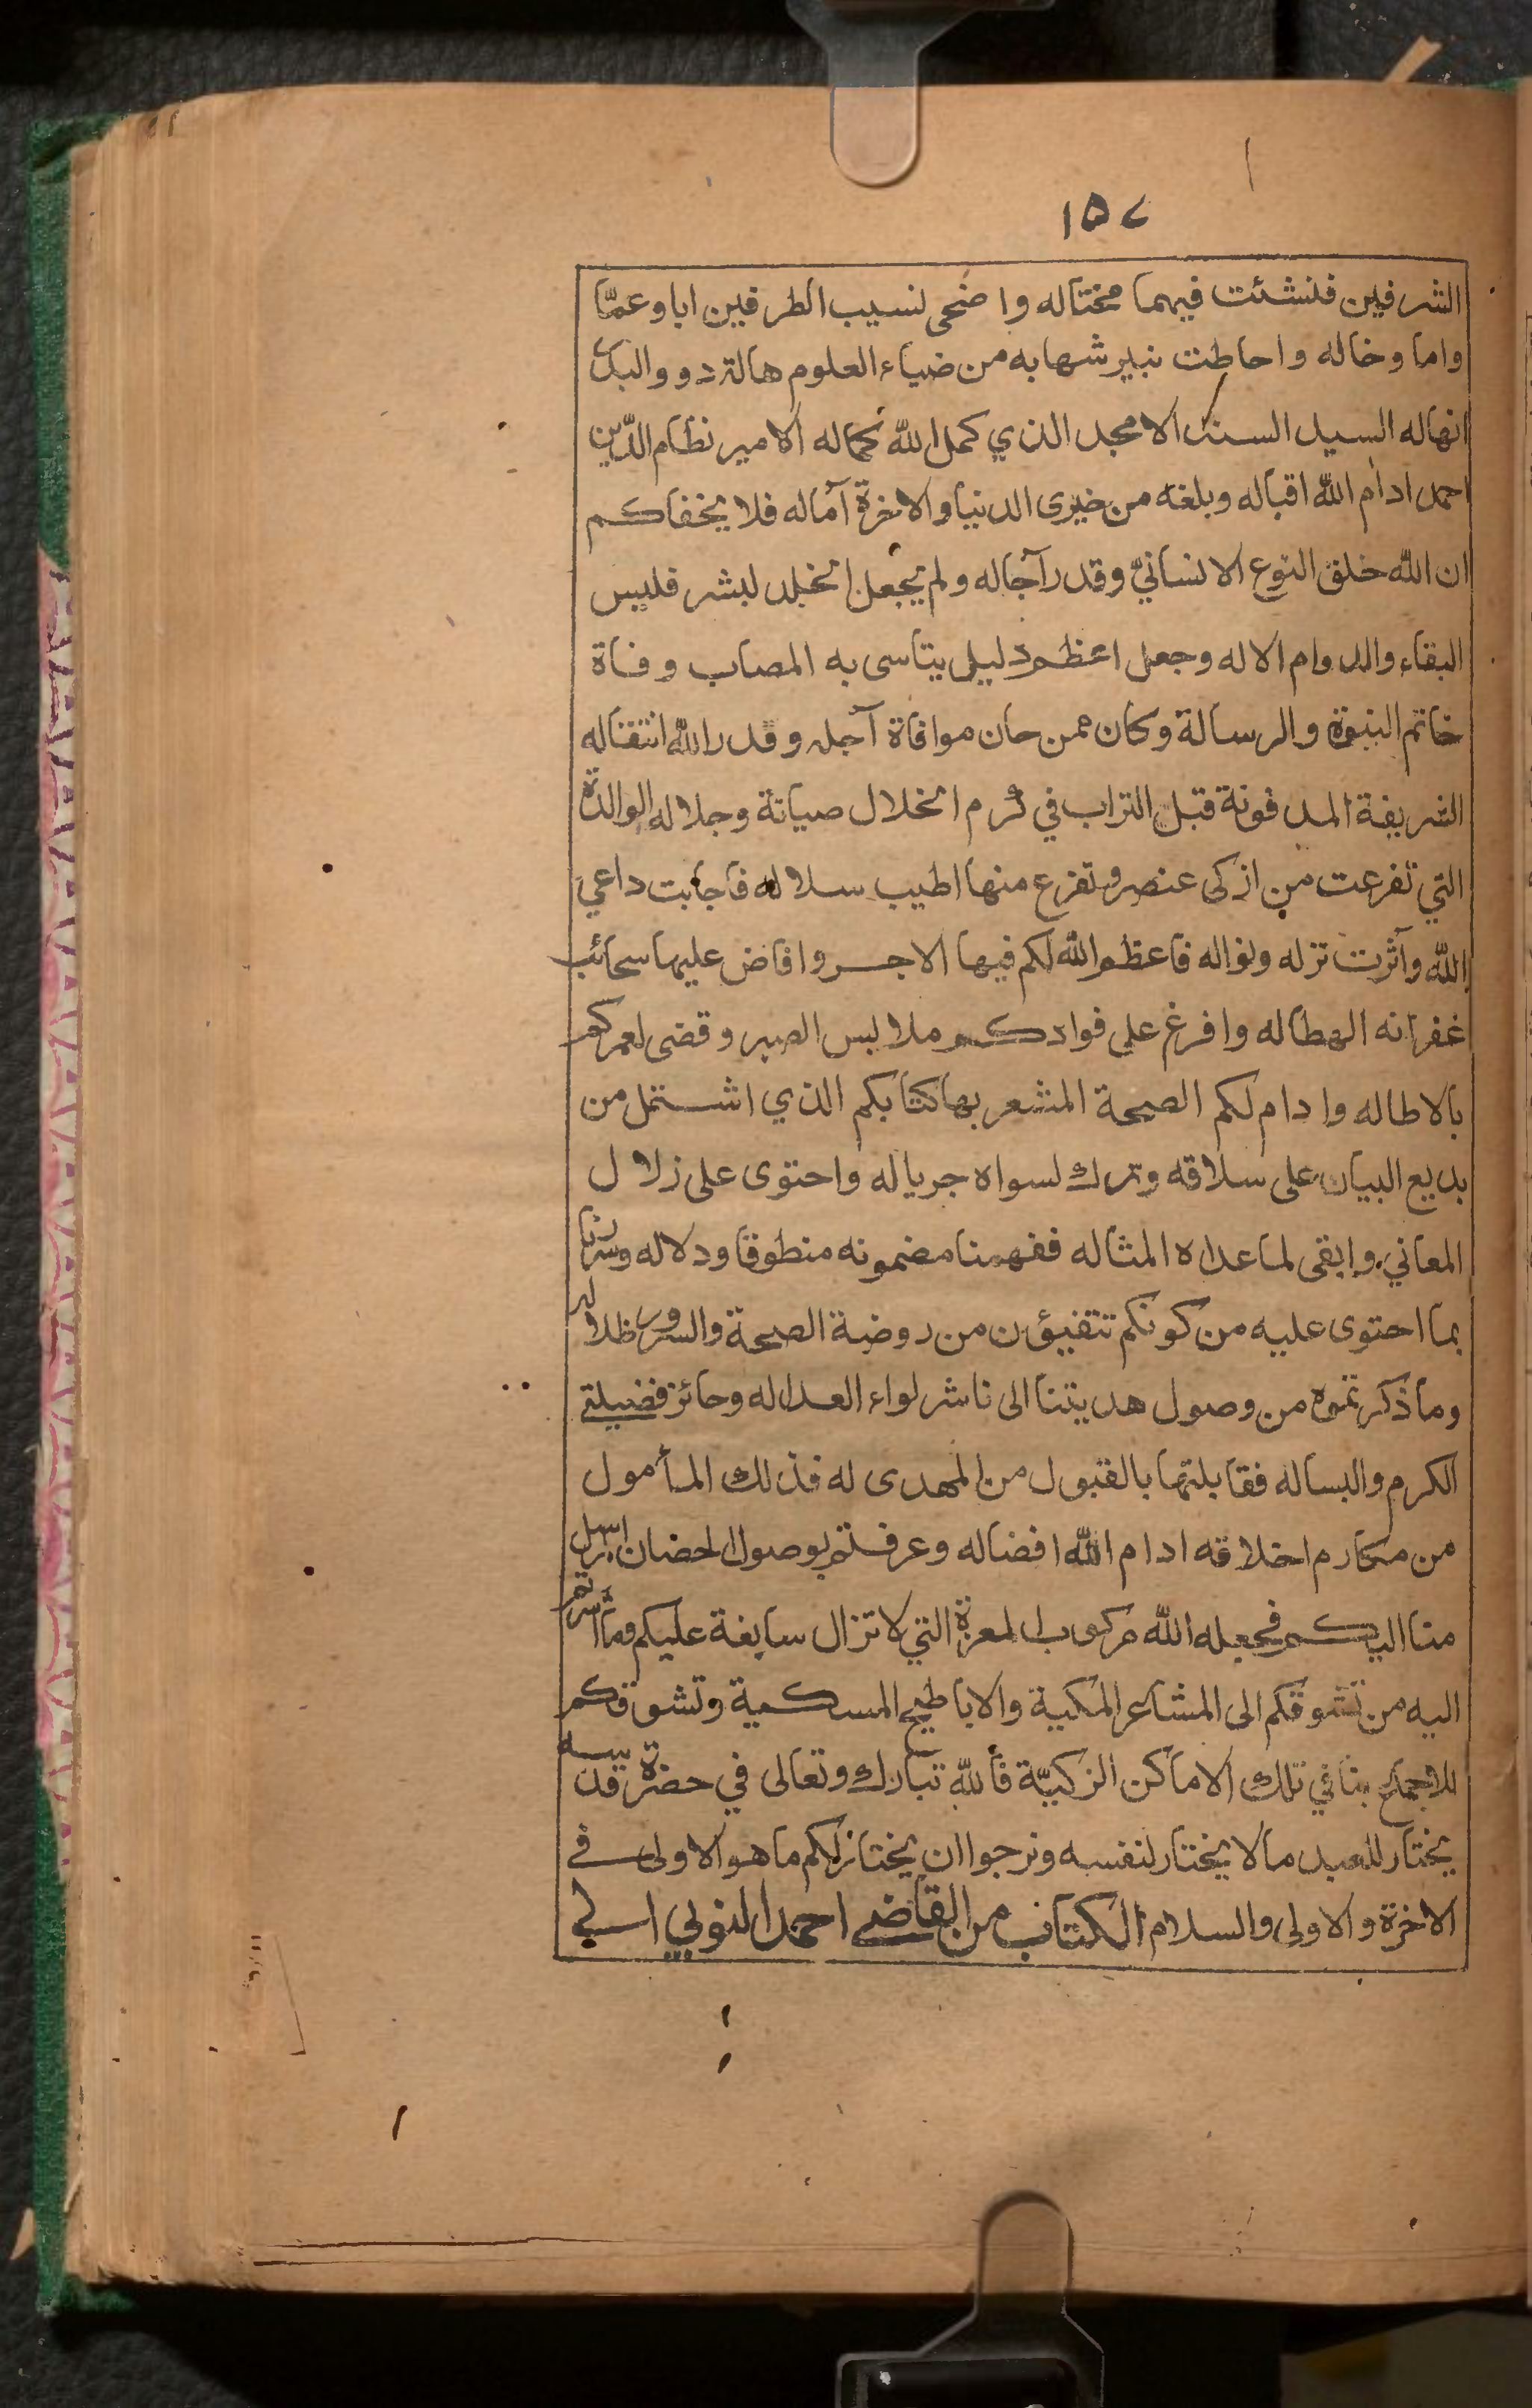 ١٥٧
الشرفين فنشئت فيهما مختاله واضحى لنسيب الطرفين ابا وعمّا
واما وخاله واحاطت بنير شهابه من ضياء العلوم هالة دو والبدر
انهاله السيد السند الامجد الذي كمل الله كماله الامير نظام الدّين
احمد ادام الله اقباله وبلغه من خيرى الدنيا والاخرة آماله فلا يخفاكم
ان الله خلق النوع الانسانيّ وقدر آجاله ولم يجعل الخلد لبشر فليس
البقاء والدوام الا له وجعل اعظم دليل يتاسى به المصاب وفاة
خاتم النبوة والرسالة وكان ممن حان موافاة آجله وقدر الله انتقاله
الشريفة المدفونة قبل التراب في كرم الخلال صيانة وجلاله الوالدة
التي تفرعت من ازكى عنصر وتفرع منها اطيب سلاله فاجابت داعي
الله وآثرت نزله ونواله فاعظم الله لكم فيها الاجر وافاض عليها سحائب
غفرانه الهطاله وافرغ على فوادكم ملابس الصبر وقضى لعمركم
بالاطاله وادام لكم الصحة المشعر بها كتابكم الذي اشتمل من
بديع البيان على سلاقه وترك لسواه جرياله واحتوى على زلال
المعاني وابقى لما عداه المثاله ففهمنا مضمونه منطوقا ودلاله وسرنا
بما احتوى عليه من كونكم تتفيؤن من روضة الصحة والسرور ظلاله
وما ذكرتموه من وصول هديتنا الى ناشر لواء العداله وحائز فضيلتي
الكرم والبساله فقابلتها بالقبول من المهدى له فذلك المأمول
من مكارم اخلاقه ادام الله افضاله وعرفتم بوصول الحضان المرسل
منا اليكم فجعله الله مركوب المعزة التي لا تزال سابغة عليكم وما اشرتم
اليه من تشوقكم الى المشاعر المكية والاباطيح المسكية وتشوقكم
للاجماع بنا في تلك الاماكن الزكيّة فالله تبارك وتعالى في حضرة قدسه
يختار للعبد ما لا يختار لنفسه ونرجوا ان يختار لكم ما هو الاولى في
الاخرة والاولى والسلام الكتاب من القاضي احمد النوبي الى